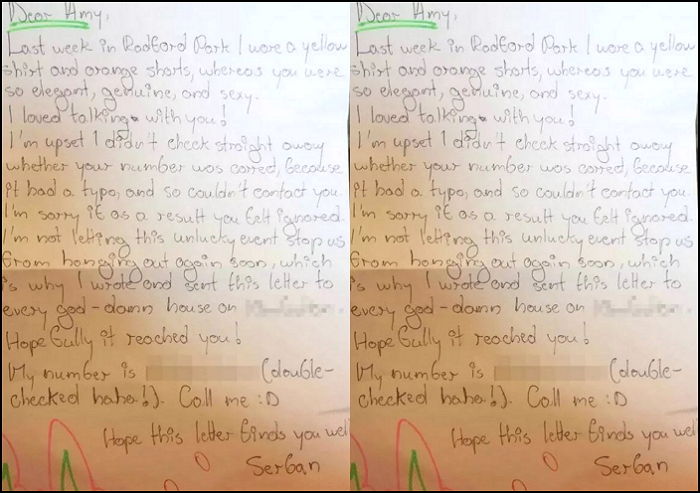 Dear Amy,
Last week in Radford Park I wore a yellow
shirt and orange shorts, whereas you were
so elegant, genuine, and sexy.
I loved talking with you!
I'm upset I didn't check straight away
whether your number was correct, because
it had a typo, and so couldn't contact you.
I'm sorry if as a result you felt ignored.
I'm not letting this unlucky event stop us
from hanging out again soon, which
is why I wrote and sent this letter to
every god-damn house on
Hope fully it reached you!
My number is (double-
checked haha!). Call me :D
Hope this letter finds you wel
Serban
Dear Amy,
Last week in Radford Park I wore a yellow
shirt and orange shorts, whereas you were
so elegant, genuine, and sexy.
I loved talking with you!
I'm upset I didn't check straight away
whether your number was correct, because
it had a typo, and so couldn't contact you.
I'm sorry if as a result you felt ignored.
I'm not letting this unlucky event stop us
from hanging out again soon, which
is why I wrote and sent this letter to
every god-damn house on
Hope fully it reached you!
My number is (double-
checked haha!). Call me :D
Hope this letter finds you wel
Serban